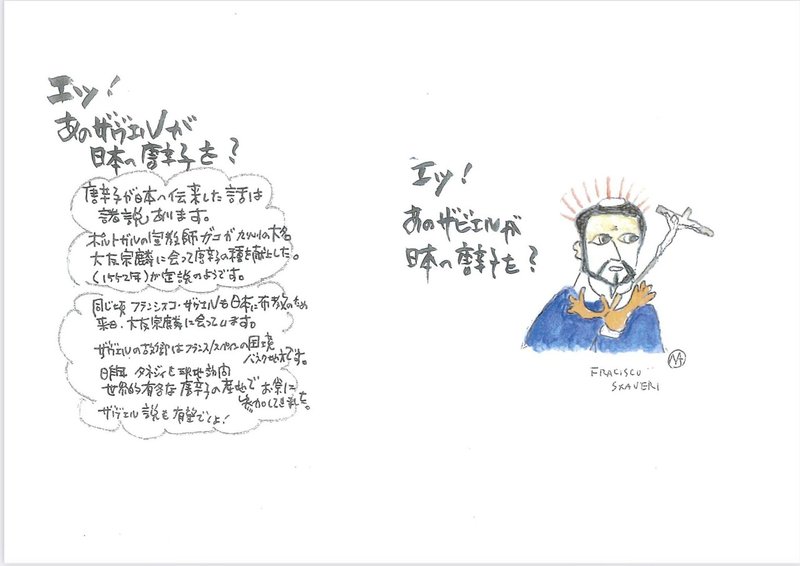 エッ!
あのザヴィエルが
日本へ唐辛子を?
唐辛子が日本へ伝来した話は
諸説あります。
ポルトガルの宣教師ガゴが九州の大名
大友宗麟に会って唐辛子の種を献上した。
(1552年)が定説のようです。
同じ頃 フランシスコ・ザヴィエルも日本に布教のため
来日、大友宗麟に会っています。
ザヴィエルの故郷はフランス/スペインの国境
バスク地方です。
タネジィも現地訪問
世界的有名な唐辛子の産地でお祭に
参加してきました。
ザヴィエル説も有望でしょ!
エッ!
あのザビエルが
日本へ唐辛子を?
FRACISCU
SXAVERI